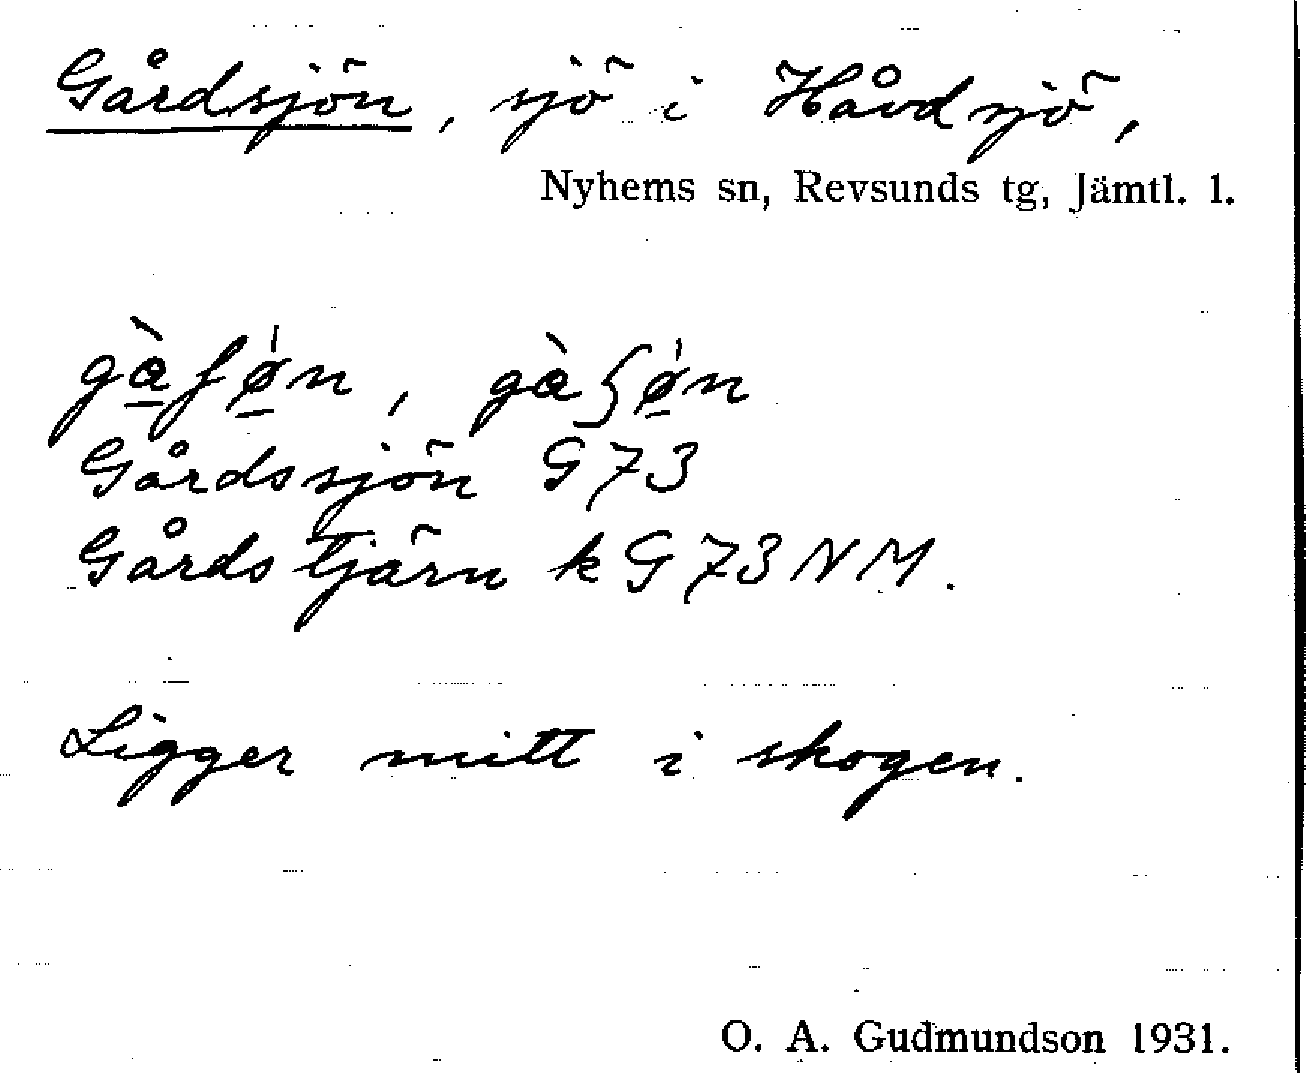 Gårdsjön, sjö i Håvdsjö,
Nyhems sn, Revsunds tg, Jämtl. l.
gà̱ʃǿ̱n, gàʃǿ̱n
Gårdssjön G73
Gårdstjärn k G73NM.
Ligger mitt i skogen.
O. A. Gudmundson 1931.